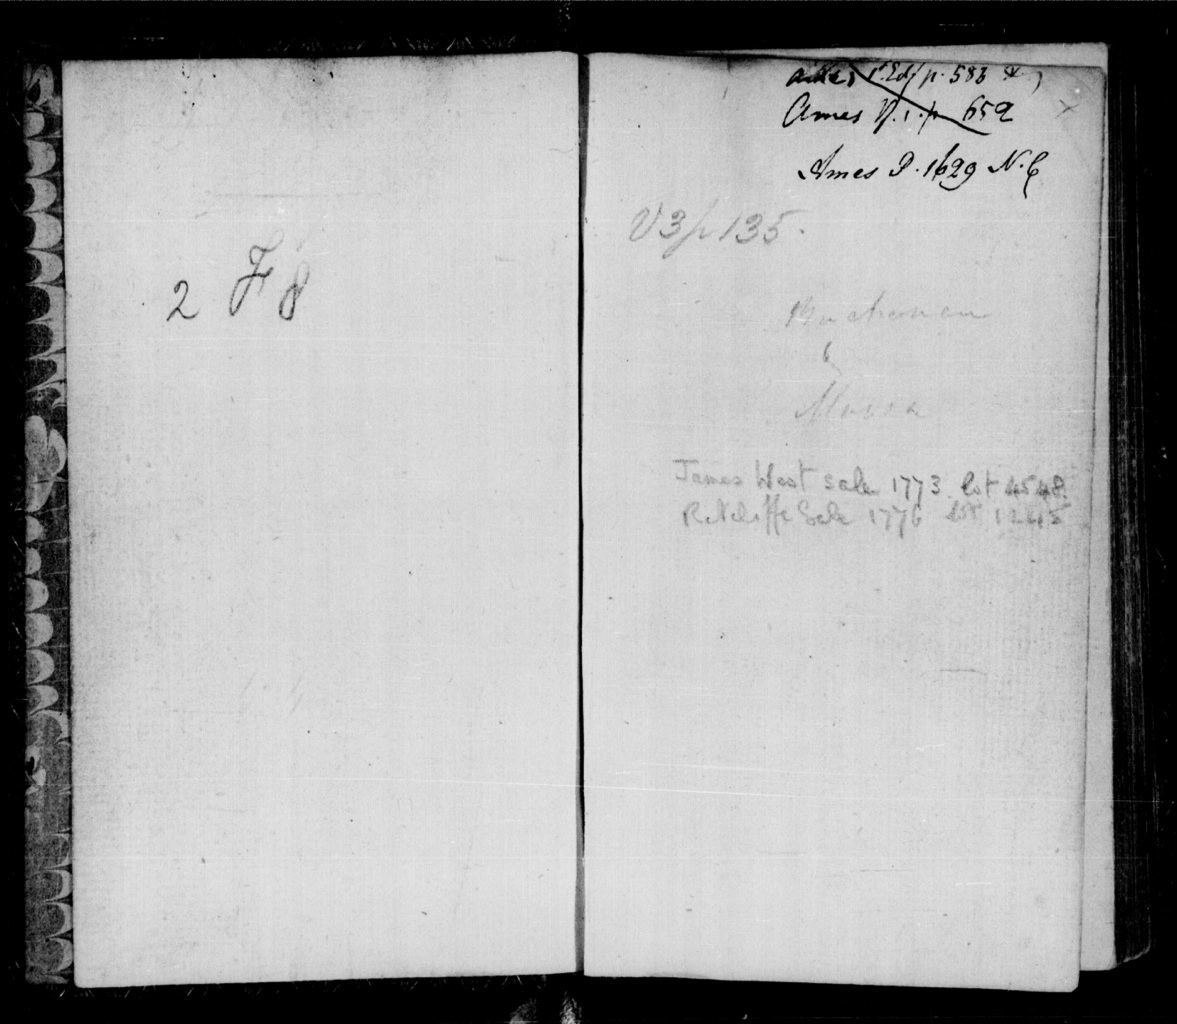 2 F 8
Ames 1st Ed p. 583 &
Ames V. 1. p 652
Ames P. 1629 N. 6
V3 p 135.
Buchanan
6
James West Sale 1773 lot 4548.
Ratcliffe Sale 1776 lot 1245